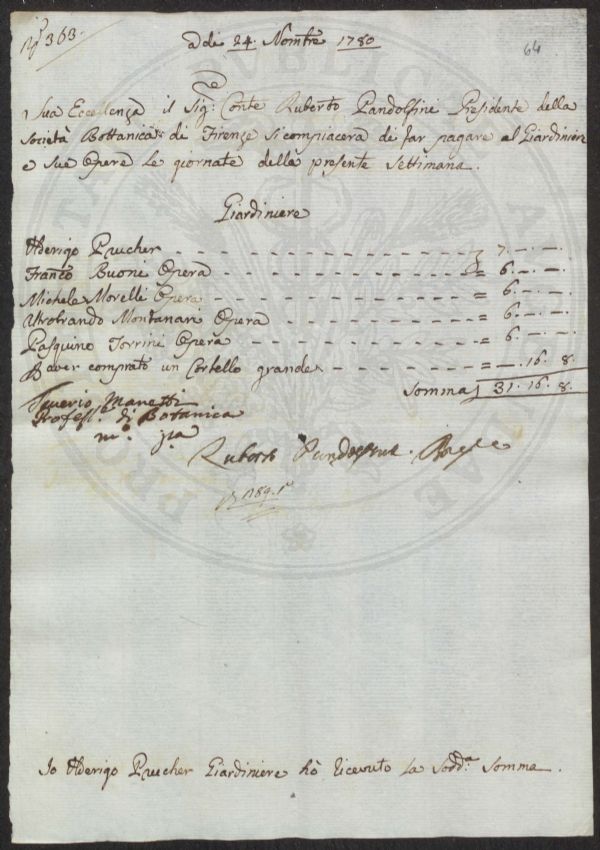 N° 363.
adi 24. Nombre 1780
64
Sua Eccellenza il Sig: Conte Ruberto Pandolfini Presidente della
Società Bottanica di Firenze si compiacerà di far pagare al Giardiniere
e sue Opere le giornate della presente Settimana.
Giardiniere
Ulderigo Prucher - - - 7. — . — .
Franco Buoni Opera - - - = 6. — . — .
Michele Morelli Opera - - - = 6. — . — .
Montanari Opera - - - = 6. — . — .
Pasquino Torrini Opera - - - = 6. — . — .
D aver comprato un Cortello grande - - - = — . 16. 8.
Somma 31. 16. 8.
Saverio Manetti
Profess.e di Botanica
m.° p.a
Ruberto Pandolfini
Io Ulderigo Prucher Giardiniere hò ricevuto la Sodd.a Somma.